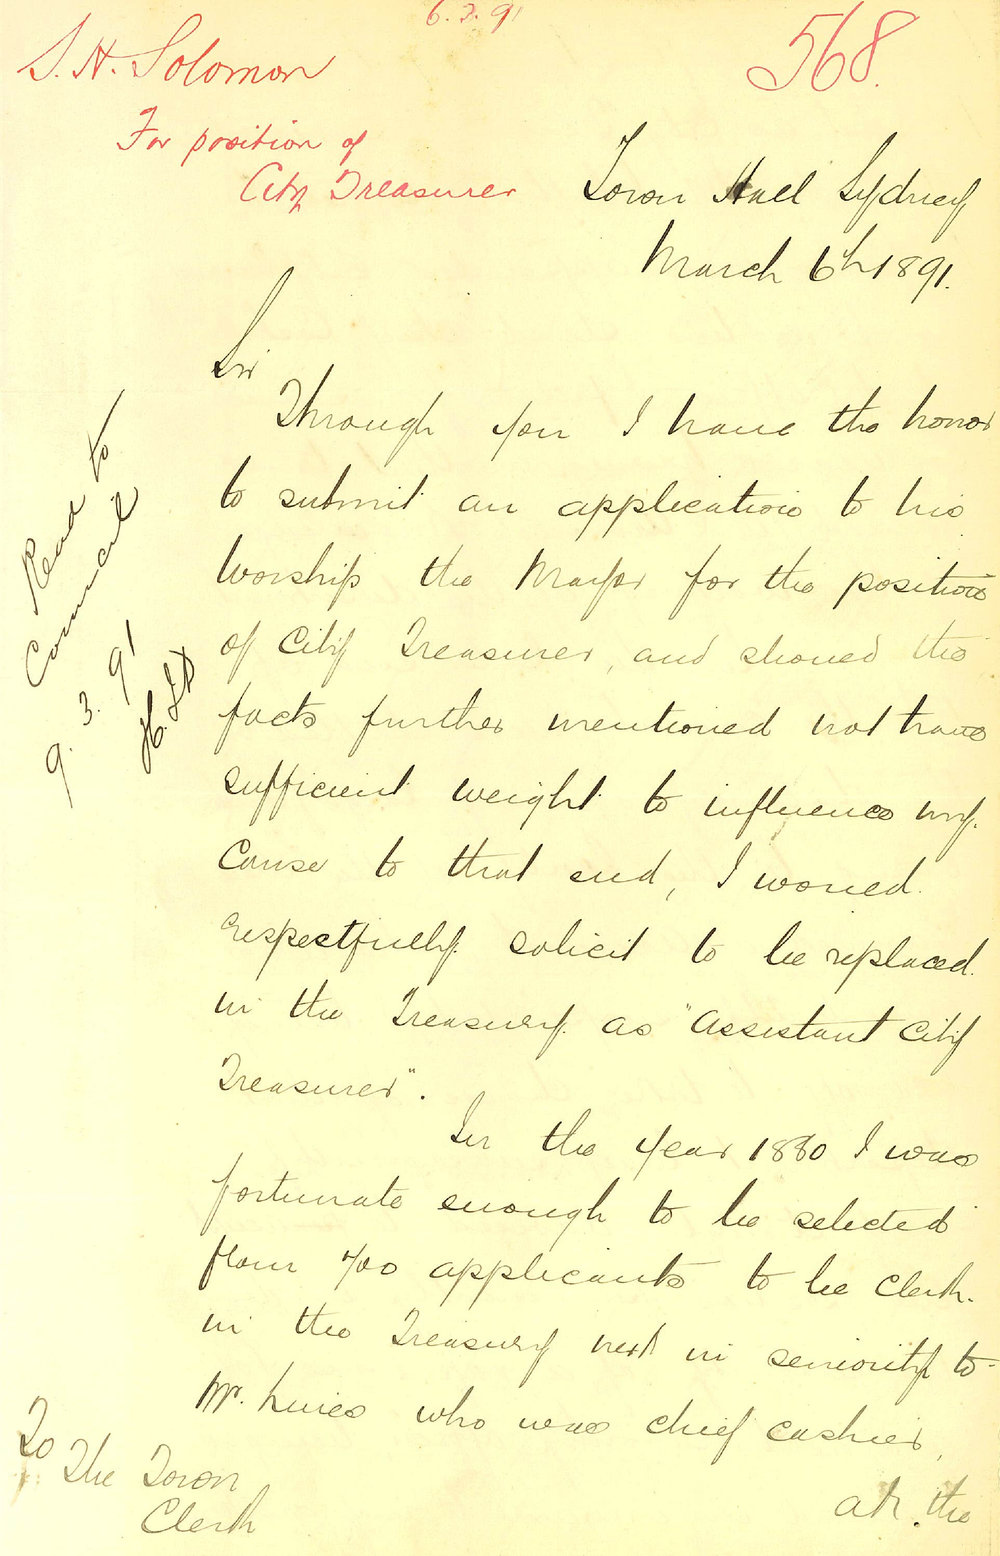 6.3.91
568.
S. H. Solomon
For position of
City Treasurer
Town Hall Sydney
March 6th 1891.
Sir
Through you I have the honor
to submit an application to his
Worship the Mayor for the position
of City Treasurer, and should the
facts further mentioned not have
sufficient weight to influence my
Cause to that end, I would
respectfully solicit to be replaced
in the Treasury as "Assistant City
Treasurer".
In the year 1880 I was
fortunate enough to be selected
from 700 applicants to be Clerk
in the Treasury next in seniority to
Mr. who was chief cashier,
at the
Read to
Council
9.3.91
To
The Town
Clerk